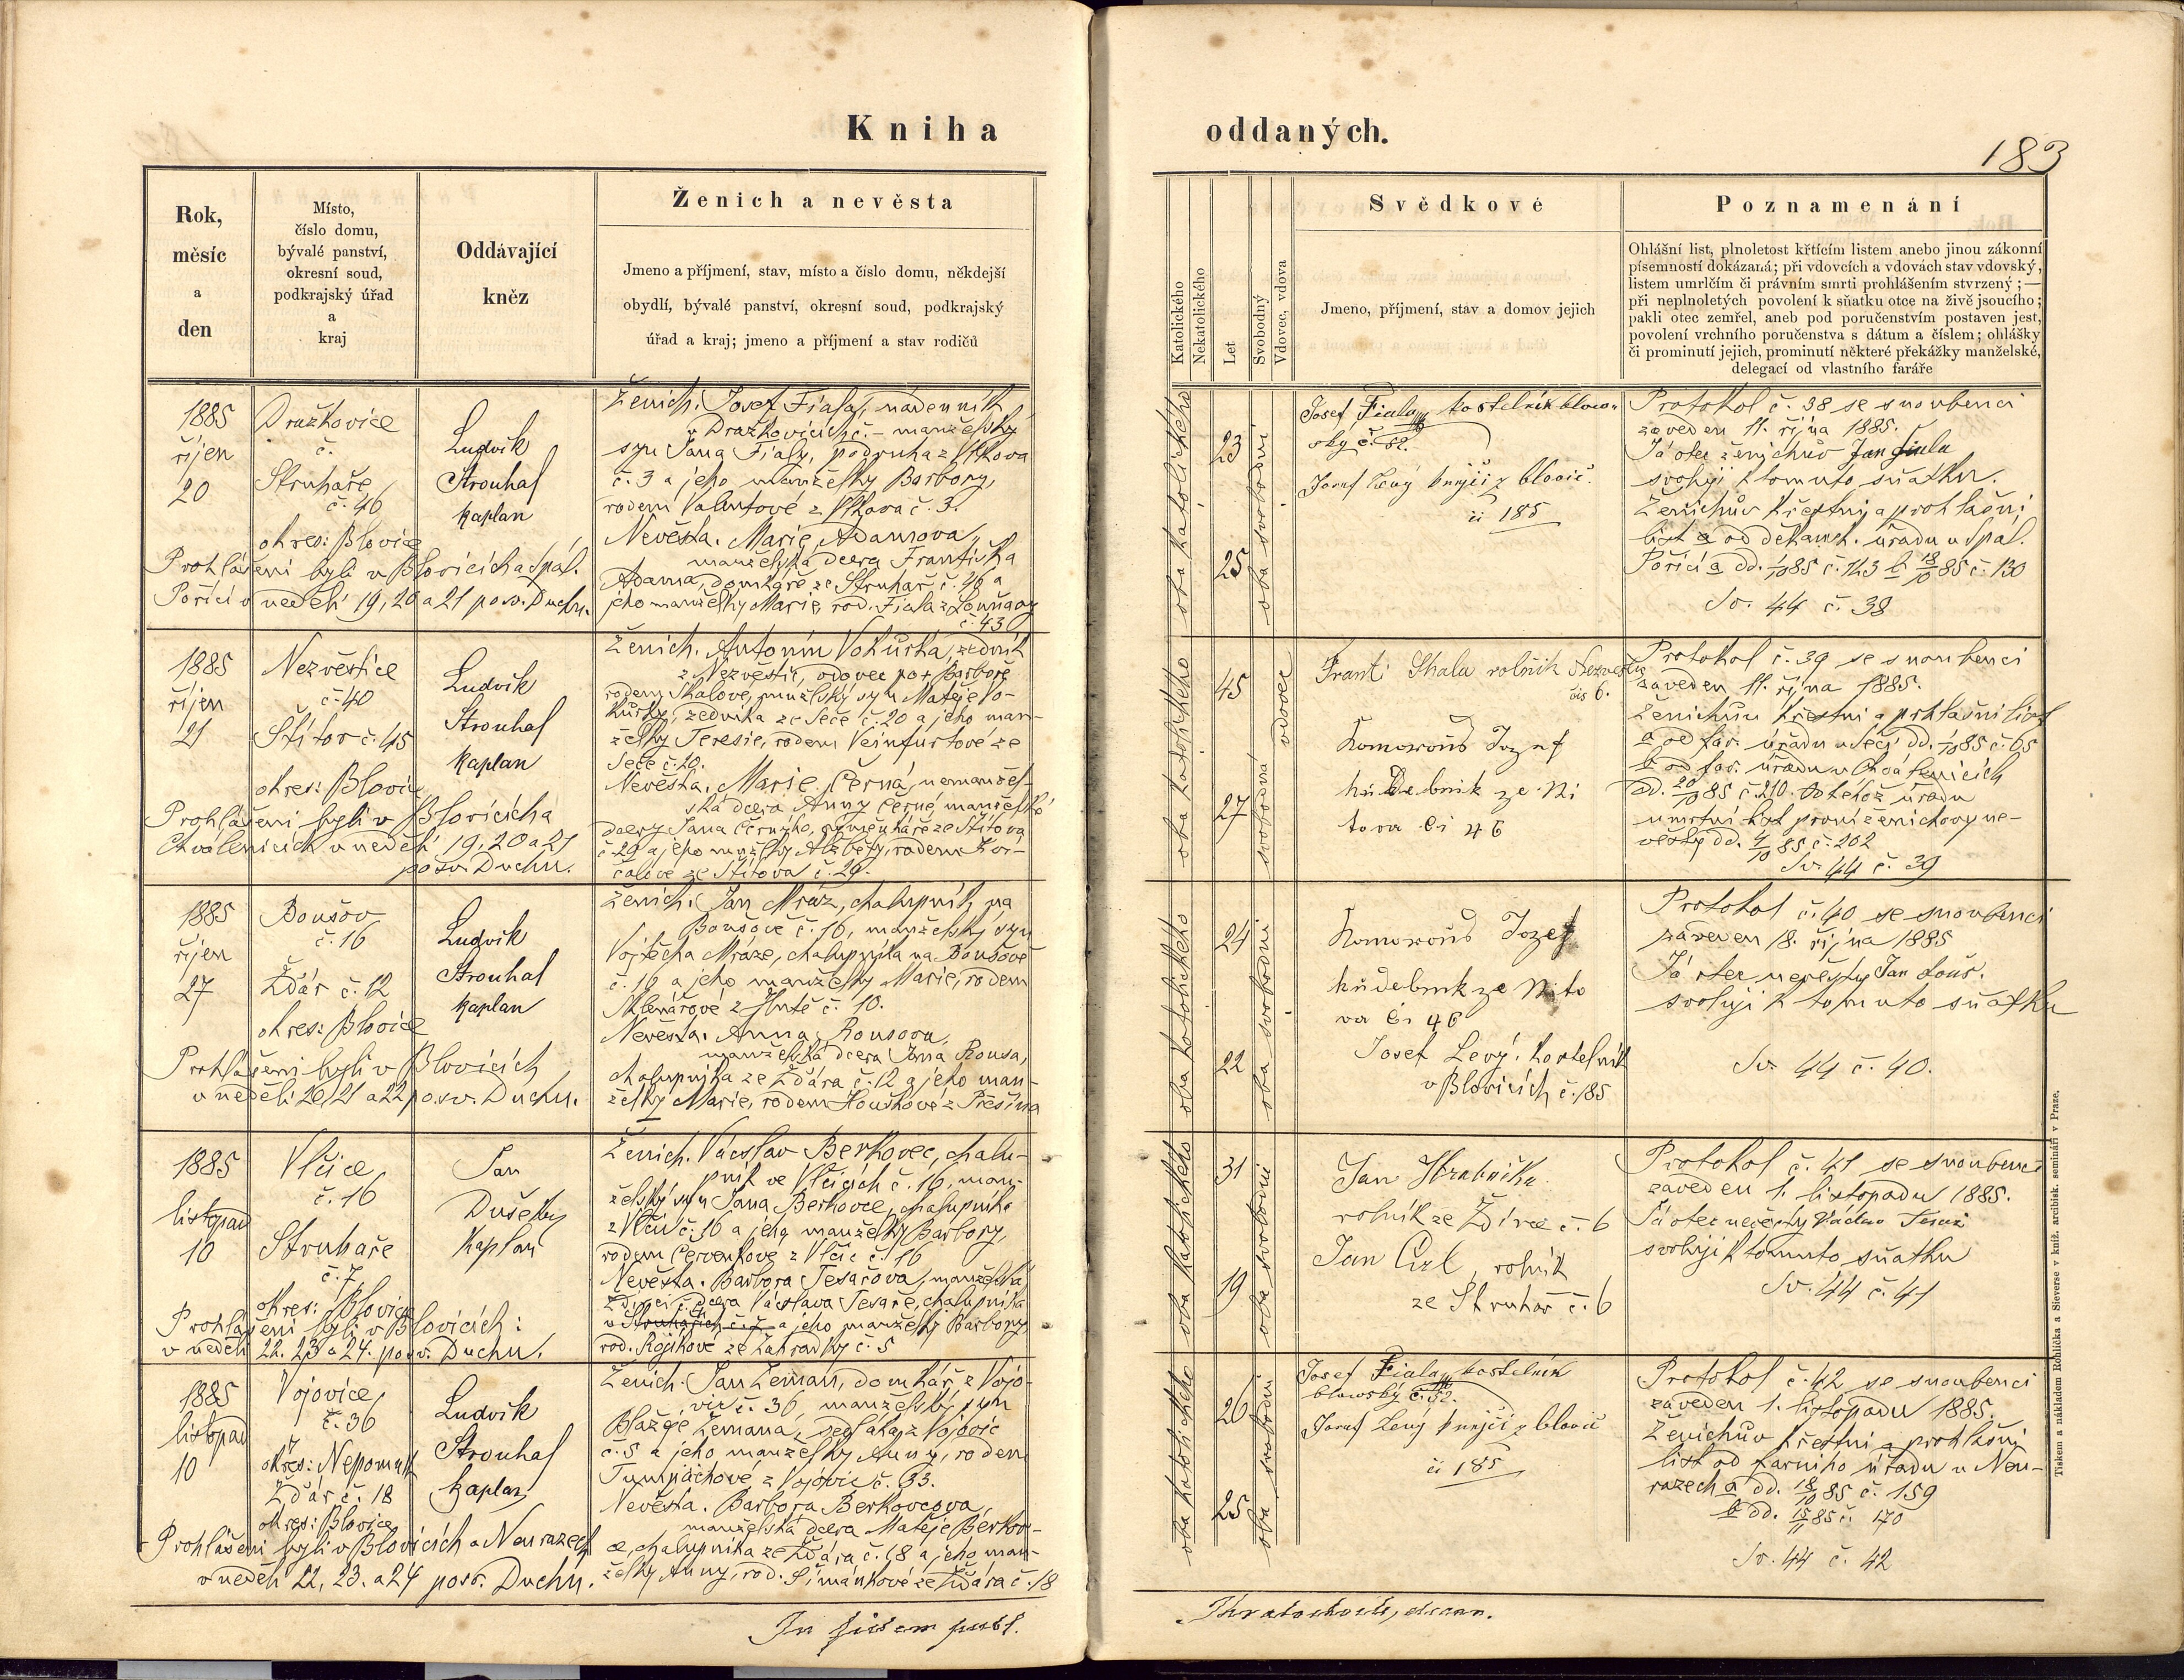 Kniha
oddaných.
183
Rok,
měsíc
a
den
Místo,
číslo domu,
bývalé panství,
okresní soud,
podkrajský úřad
a
kraj
Oddávající
kněz
Ženich a nevěsta
Jmeno a příjmení, stav, místo a číslo domu, někdejší
obydlí, bývalé panství, okresní soud, podkrajský
úřad a kraj; jmeno a příjmení a stav rodičů
Katolického
Nekatolického
Let
Svobodný
Vdovec, vdova
Svědkové
Jmeno, příjmení, stav a domov jejich
Poznamenání
Ohlášní list, plnoletost křtícím listem anebo jinou zákonní
písemností dokázaná; při vdovcích a vdovách stav vdovský,
listem umrlčím či právním smrti prohlášením stvrzený; —
při neplnoletých povolení k sňatku otce na živě jsoucího;
pakli otec zemřel, aneb pod poručenstvím postaven jest,
povolení vrchního poručenstva s dátum a číslem; ohlášky
či prominutí jejich, prominutí některé překážky manželské,
delegací od vlastního faráře
1885
říjen
20
Dražkovice
č.
Struhaře
č. 46
okres: Blovice
Ludvík
Strouhal
kaplan
Prohlášeni byli v Blovicích a Spál.
Poříčí v neděli 19, 20 a 21 po sv. Duchu.
Ženich. Josef Fiala, nádenník
v Dražkovicích č. – manželský
syn Jana Fialy, podruha z Vlkova
č. 3 a jeho manželky Barbory,
rodem Valentové z Vlkova č. 3.
Nevěsta. Marie Adamova,
manželská dcera Františka
Adama, domkáře ze Struhař č. 46 a
jeho manželky Marie, rod. Fiala z Louňovy
č. 43
oba katolického
23
25
oba svobodni
Josef Fiala kostelník blow-
ský č. 52.
Josef Levý krejčí z Blovic
čí 185
Protokol č. 38 se snoubenci
zaveden 11. října 1885.
Já otec ženichův Jan Fiala
svoluji k tomuto sňatku.
Ženichův křestní a prohlašní
list a od děkansk. úřadu u Spál.
Poříčí a dd. 1/10 85 č. 123 b 18/10 85 č. 130
Sv. 44 č. 38
1885
říjen
21
Nezvěstice
č. 40
Štítov č. 45
okres: Blovice
Ludvík
Strouhal
kaplan
Prohlášeni byli v Blovicích a
Chválenicích v neděli 19, 20 a 21
po sv. Duchu.
Ženich. Antonín Vokurka, zedník
z Nezvěstic, vdovec po + Barboře
rodem Skalové, manželský syn Matěje Vo-
kurky, zedníka ze Seče č. 20 a jeho man-
želky Teresie, rodem Veinfurtové ze
Seče č. 20.
Nevěsta. Marie Černá, nemanžel-
ská dcera Anny Černé, manželské
dcery Jana Černýho, ze Štítova
č. 29 a jeho manželky Alžběty, rodem Koř-
čalové ze Štítova č. 29.
oba katolického
45
27
vdovec
svobodná
Frant Skala rolník Nezvěstic
čis 6.
Komorouš Jozef
hudebnik ze Ští
tova či 46
Protokol č. 39 se snoubenci
zaveden 11. října 1885.
Ženichův křestní a prohlašní list
a od far. úřadu u Seči dd. 1/10 85 č. 65
b od far. úřadu v Chválenicích
dd. 20/10 85 č. 210. Od téhož úřadu
umrtní list první ženichovy ne-
věsty dd. 4/10 85 č. 202
Sv. 44 č. 39
1885
říjen
27
Boušov
č. 16
Žďár č. 12
okres: Blovice
Ludvík
Strouhal
kaplan
Prohlášeni byli v Blovicích
v neděli 20, 21 a 22 po sv. Duchu.
Ženich. Jan Mráz, chalupník na
Boušově č. 16, manželský syn
Vojtěcha Mráze, chalupníka na Boušově
č. 16 a jeho manželky Marie, rodem
Sklenářové z Hutě č. 10.
Nevěsta. Anna Rousova,
manželská dcera Jana Rousa,
chalupníka ze Žďára č. 12 a jeho man-
želky Marie, rodem Houškové z Přešina
oba katolického
24
22
oba svobodni
Komorouš Jozef
hudebnik ze Štíto
va či 46
Josef Levý, kostelník
v Blovicích č. 185
Protokol č. 40 se snoubenci
zaveden 18. října 1885
Já otec nevěsty Jan Rous.
svoluji k tomuto sňatku
Sv. 44 č. 40.
1885
listopad
10
Vlčice
č. 16
Struhaře
č. 7
okres: Blovice
Jan
Dušek
kaplan
Prohlášeni byli v Blovicích:
v neděli 22. 23 a 24. po sv. Duchu.
Ženich. Václav Berkovec, chalu-
pník ve Vlčicích č. 16, man-
želský syn Jana Berkovce, chalupníka
z Vlčic č. 16 a jeho manželky Barbory,
rodem Červenkové z Vlčic č. 16
Nevěsta. Barbora Tesařova, manželská
dcera Václava Tesaře, chalupníka
v Struhařích č. 7 a jeho manželky Barbory,
rod. Rojíkove ze Zahrádky č. 5
oba katolického
31
19
oba svobodni
Jan Hrabačka
rolník ze Ždírce č. 6
Jan Cizl, rolník
ze Struhař č. 6
Protokol č. 41 se snoubenci
zaveden 1. listopadu 1885.
Já otec nevěsty Václav Tesař
svoluji k tomuto sňatku
Sv. 44 č. 41
1885
listopad
10
Vojovice
č. 36
okres: Nepomuk
Žďár č. 18
okres: Blovice
Ludvík
Strouhal
kaplan
Prohlášeni byli v Blovicích a Neurazech
v neděli 22, 23. a 24 po sv. Duchu.
Ženich. Jan Zeman, domkář z Vojo-
vic č. 36, manželský syn
Blažeje Zemana, sedláka z Vojovic
č. 5 a jeho manželky Anny, rodem
Tumpachové z Vojovic č. 33.
Nevěsta. Barbora Berkovcova,
manželská dcera Matěje Berkov-
ce, chalupníka ze Žďára č. 18 a jeho man-
želky Anny, rod. Šimánkové ze Žďára č. 18
oba katolického
26
25
oba svobodni
Josef Fiala kostelník
blowský č. 52.
Josef Levý krejčí z Blovic
čí 185
Protokol č. 42 se snoubenci
zaveden 1. listopadu 1885.
Ženichův křestní a prohlašní
list od farního úřadu u Neu-
razech a dd. 18/10 85 č. 159
b dd. 15/11 85 č. 170
Sv. 44 č. 42
In fidem publ.
Tiskem a nákladem Rohlíčka a Sieverse v kníž. arcibisk. semináři v Praze.